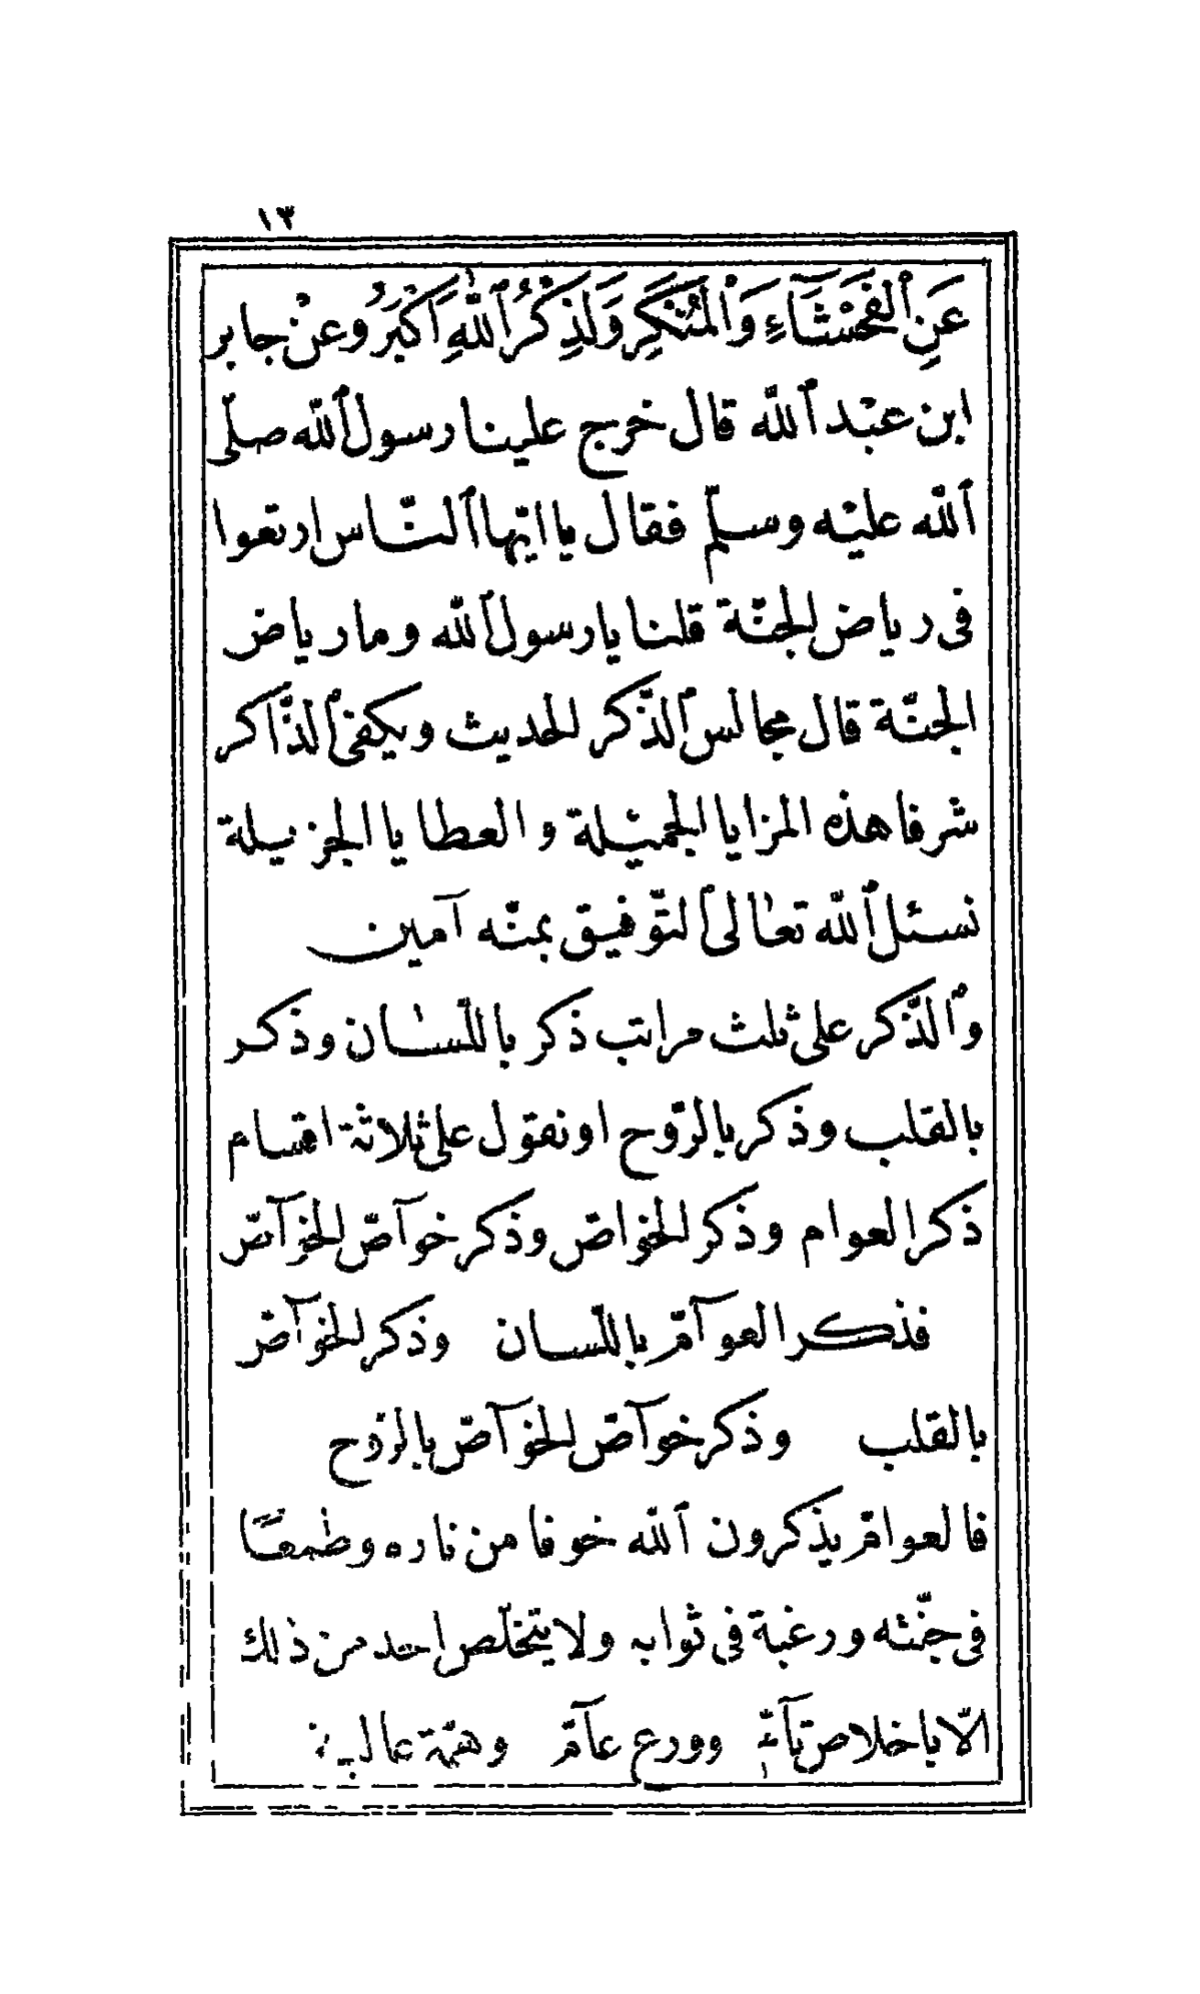 ١٣
عَنِ ٱلْفَحْشَآءِ وَٱلْمُنْكَرِ وَلَذِكْرُ ٱللّٰهِ اَكْبَرُ وعن جابر
ابن عبد ٱللّه قال خرج علينا رسول ٱللّه صلّى
ٱللّه عليه وسلّم فقال يا ايّها ٱلنّاس ارتعوا
فى رياض الجنّة قلنا يا رسول ٱللّه وما رياض
الجنّة قال مجالس ٱلذّكر الحديث ويكفى ٱلذّاكر
شرفا هذه المزايا الجميلة و العطايا الجزيلة
نسئل ٱللّه تعالى ٱلتّوفيق بمنّه آمين
وٱلذّكر على ثلث مراتب ذكر باللّسان وذكر
بالقلب وذكر بالرّوح او نقول على ثلاثة اقسام
ذكر العوام وذكر الخواصّ وذكر خوآصّ الخوآصّ
فذكر العوآمّ باللّسان وذكر الخوآصّ
بالقلب وذكر خوآصّ الخوآصّ بالرّوح
فالعوامّ يذكرون ٱللّه خوفا من ناره وطمعًا
فى جنّته ورغبة فى ثوابه ولا يتخلّص احد من ذلك
الّا باخلاص تآمّ وورع عآمّ وهمّة عالية